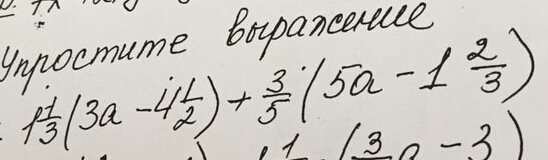 Упростите выражение
1 1/3 (3a - 4 1/2) + 3/5 (5a - 1 2/3)
(3/ a - 3